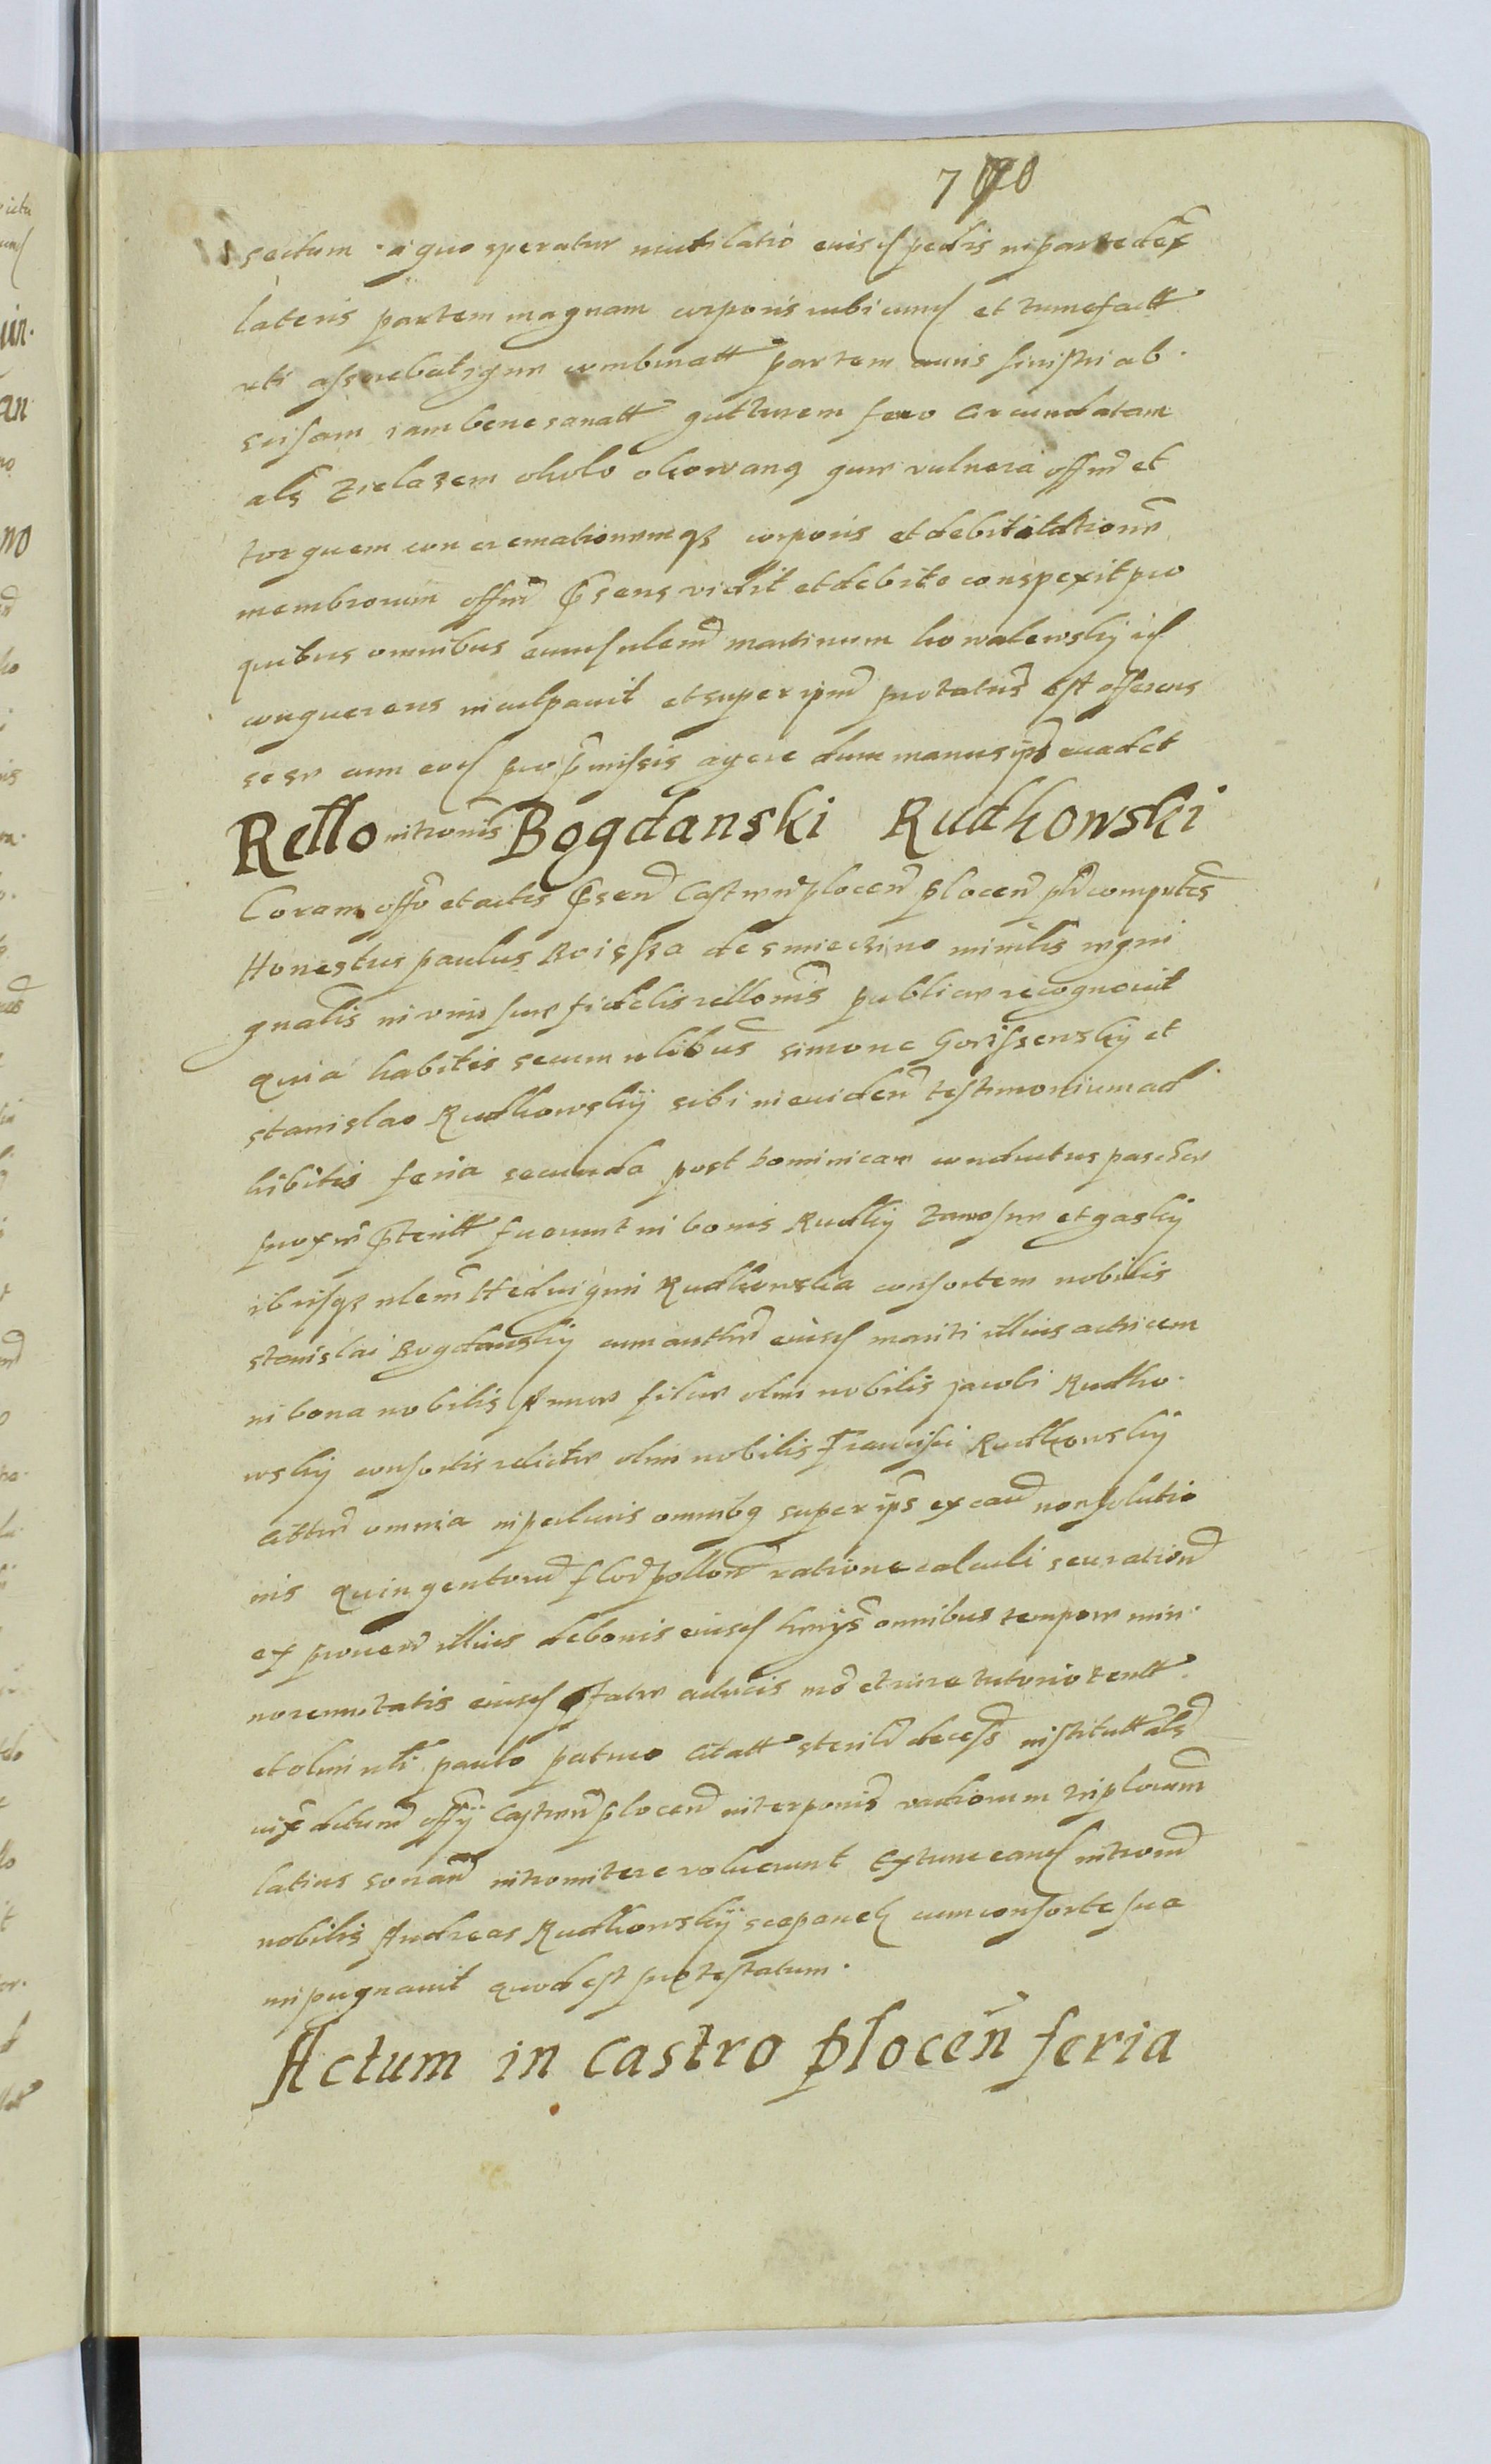 700
sectum a quo speratur mutilatio eiusd pedis in parte dex
lateris partem magnam corporis rubicund et tumefactt
uti asserebat igne combinatt partem auris sinistri ab
scisam iam bene sanatt gutturem ferro circumdatam
als zielazem okolo okowang quae vulnera offm et
torquem concremationemqz corporis et debilitatione
membrorum offm Psens vidit et debite conspexit pro
quibus omnibus eund nlem martinum kowalewsky id
conquerens inculpauit et super ipm protatus est offerens
sese cum eod pro pmissis agere dum manus ips euadet
Rello intromis Bogdanski Rudkowski
Coram offo et actis Psen Castren plocen plocen psl comptes
Honestus paulus de smiecxino ministlis regni
gnalis in vim suae fidelis rellonis publicae recognouit
quia habitis secum nlibus simone et
stanislao Rudkowskij sibi in euiden testimonium ad
hibitis feria secunda post Dominicam conductus paschae
prox pteritt fuerunt in bonis Rudky et gasky
ibiqz nlem Heduigim Rudkowska consortem nobilis
stanislai Bogdansky cum authen eiusd mariti illius actricem
in bona nobilis Annae filiae olim nobilis jacobi Rudko
wsky consortis relictae olim nobilis francisci Rudkowsky
omnia in peculiis omnibq super ips ex cau non solutio
nis quingentorum flor pollon ratione calculi seu ration
ex prouen illius de bonis eiusd omnibus tempore min
norennitatis eiusd aducis mo et iure tutorio tentt
et olim nli paulo patruo citatt steril decess institutt als
vix decum offy Castren plocen interponis vadiorum triplorum
latius sonan intromitere voluerunt Extunc eand introm
nobilis Andreas Rudkowsky scepanek cum consorte sua
inpugnauit quod est protestatum.
Actum in castro plocen feria